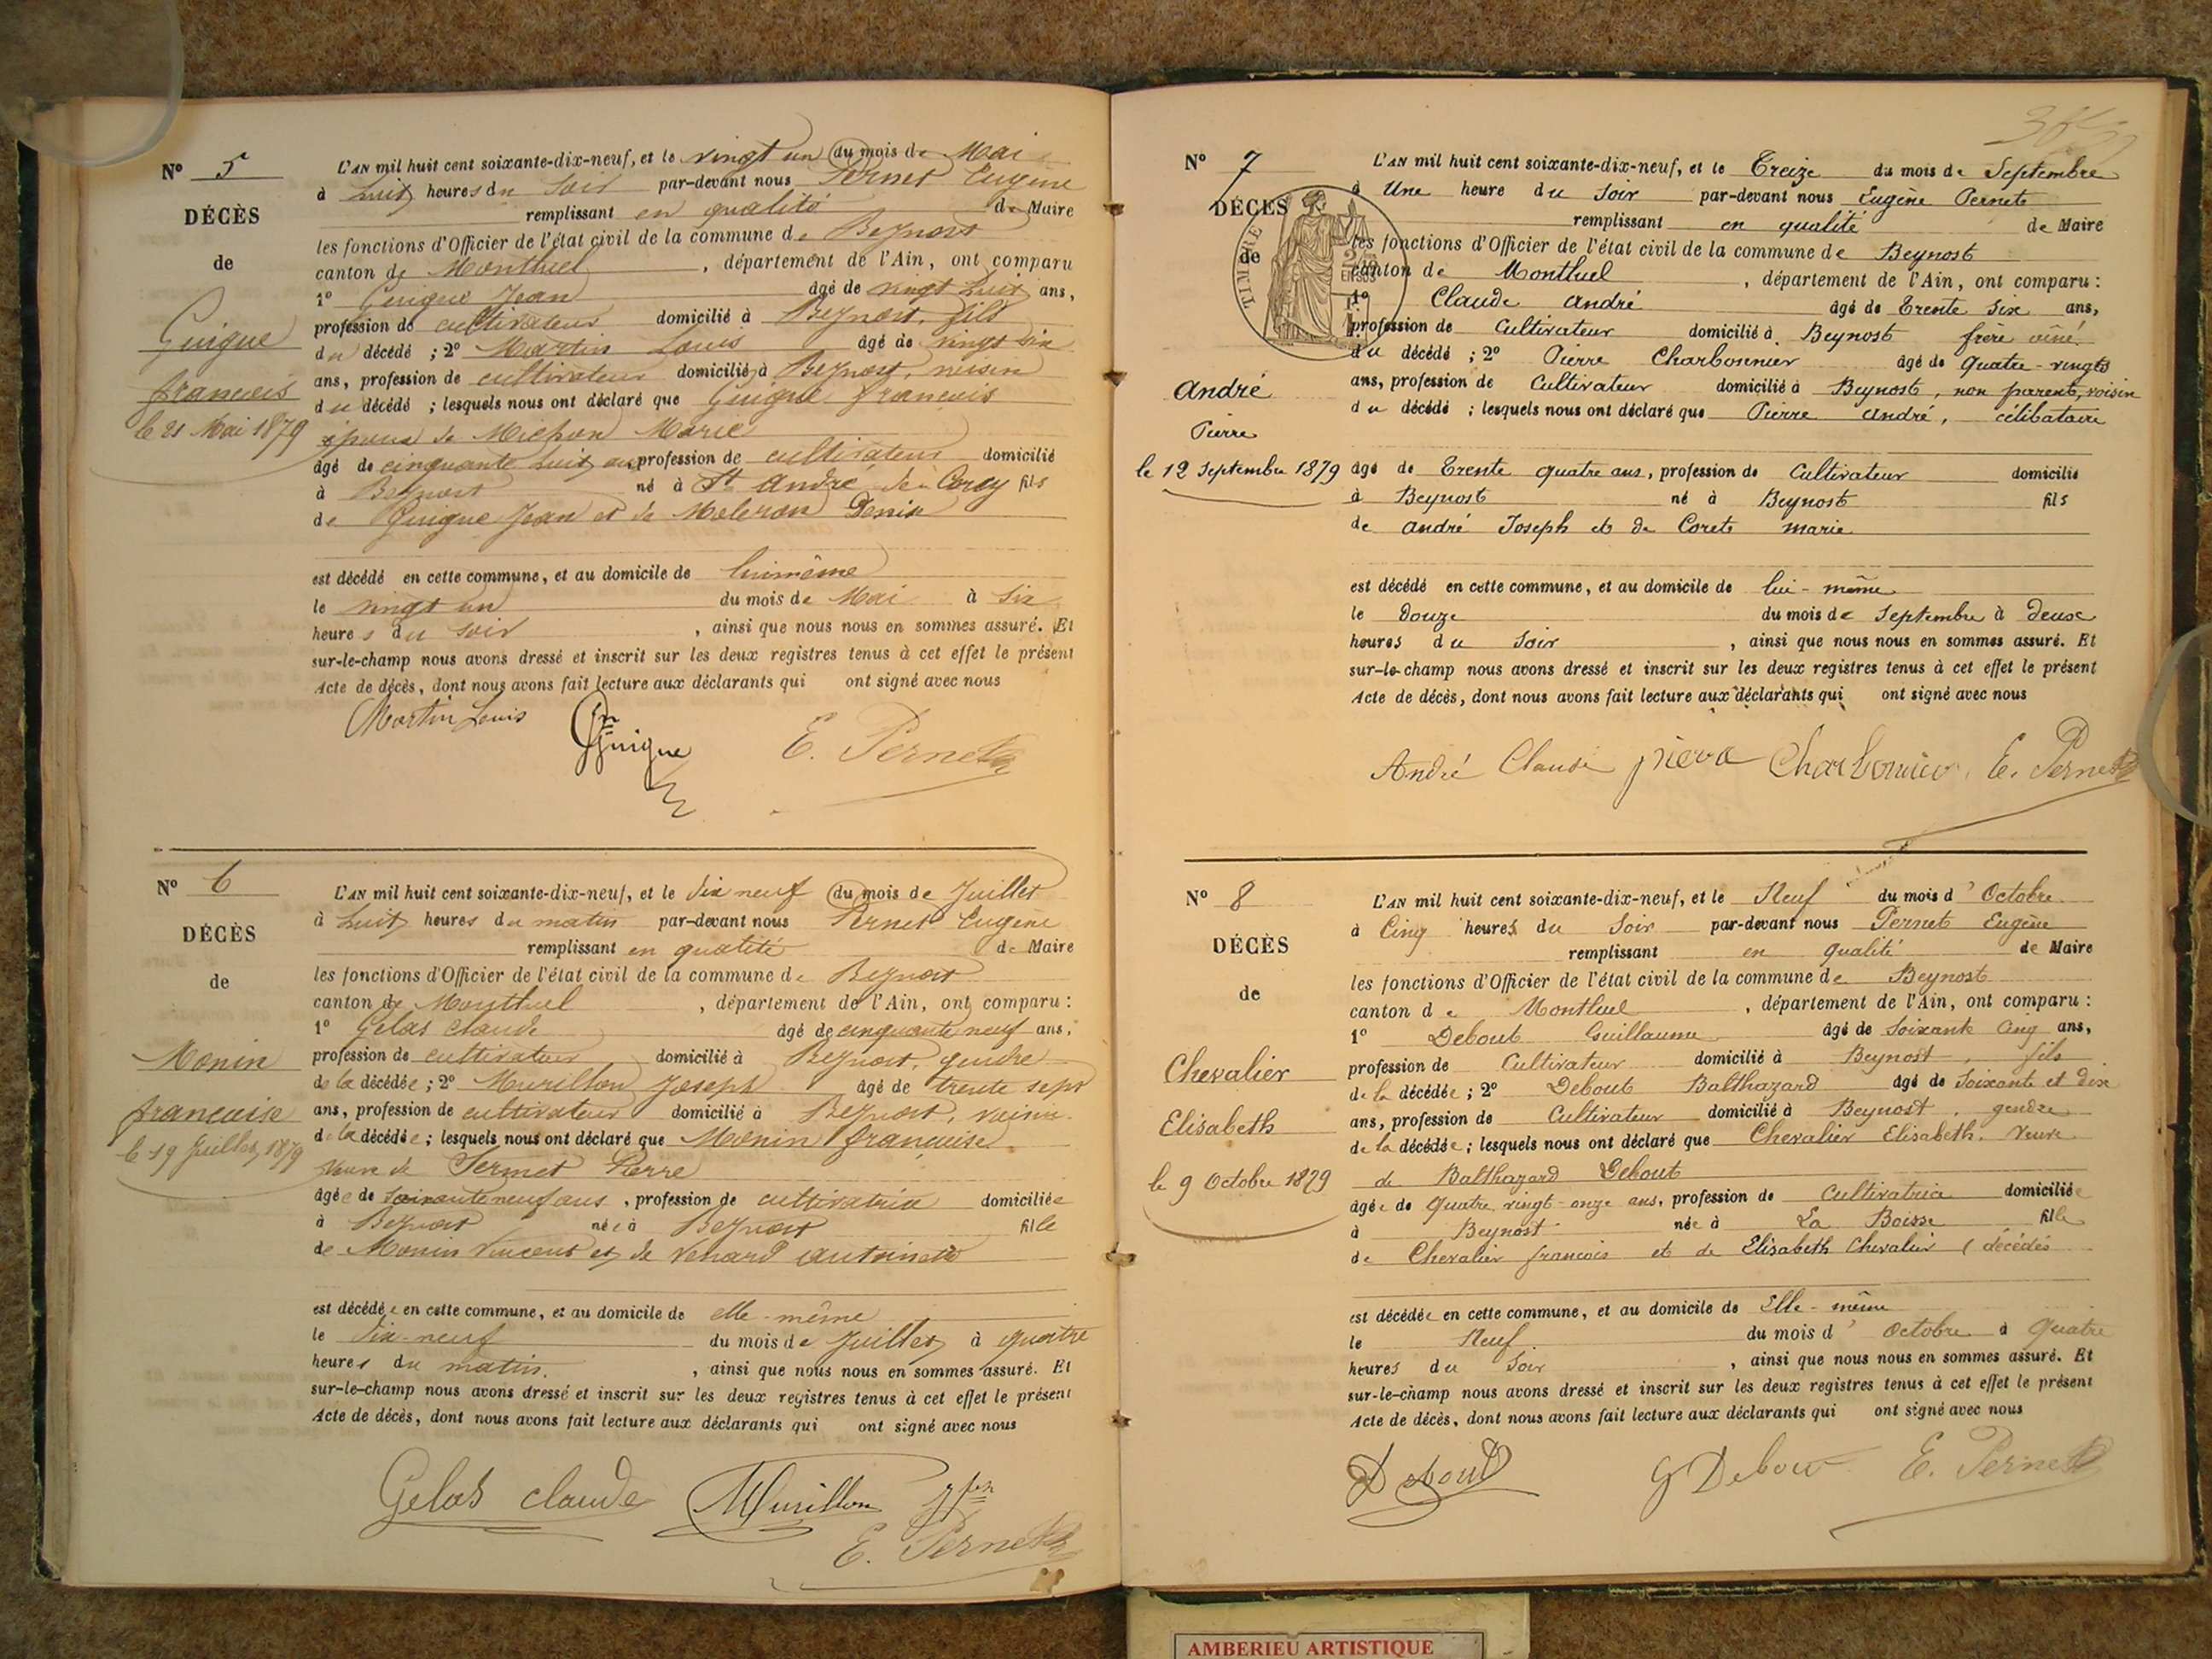 N° 5
DÉCÈS
de
Guigue
francois
le 21 Mai 1879
L'AN mil huit cent soixante-dix-neuf, et le vingt un du mois de Mai
à huit heures du Soir par-devant nous Pernet Eugène
remplissant en qualité de Maire
les fonctions d'Officier de l'état civil de la commune de Beynost
canton de Montluel, département de l'Ain, ont comparu
1° Guigue Jean âgé de vingt huit ans,
profession de cultivateur domicilié à Beynost, fils
du décédé ; 2° Martin Louis âgé de vingt six
ans, profession de cultivateur domicilié à Beynost, voisin
du décédé ; lesquels nous ont déclaré que Guigue francois
époux de Michon Marie
âgé de cinquante huit ans profession de cultivateur domicilié
à Beynost né à St André de Corcy fils
de Guigue Jean et de Meleron Denise
est décédé en cette commune, et au domicile de luimême
le vingt un du mois de Mai à Six
heures du soir, ainsi que nous nous en sommes assuré. Et
sur-le-champ nous avons dressé et inscrit sur les deux registres tenus à cet effet le présent
Acte de décès, dont nous avons fait lecture aux déclarants qui ont signé avec nous
Martin Louis Guigue E. Pernet
N° 6
DÉCÈS
de
Monin
francaise
le 19 Juillet 1879
L'AN mil huit cent soixante-dix-neuf, et le dix neuf du mois de Juillet
à huit heures du matin par-devant nous Pernet Eugène
remplissant en qualité de Maire
les fonctions d'Officier de l'état civil de la commune de Beynost
canton de Montluel, département de l'Ain, ont comparu :
1° Gelas Claude âgé de cinquante neuf ans,
profession de cultivateur domicilié à Beynost, gendre
de la décédée ; 2° Murillon Joseph âgé de trente sept
ans, profession de cultivateur domicilié à Beynost, voisin
de la décédée ; lesquels nous ont déclaré que Monin francaise
veuve de Sermet Pierre
âgée de soixante neuf ans, profession de cultivatrice domiciliée
à Beynost née à Beynost fille
de Monin Vincent et de Venard antoinette
est décédée en cette commune, et au domicile de elle-même
le dix-neuf du mois de Juillet à quatre
heures du matin, ainsi que nous nous en sommes assuré. Et
sur-le-champ nous avons dressé et inscrit sur les deux registres tenus à cet effet le présent
Acte de décès, dont nous avons fait lecture aux déclarants qui ont signé avec nous
Gelas claude Murillon Jph
E. Pernet
N° 7
DÉCÈS
de
TIMBRE
André
Pierre
le 12 Septembre 1879
L'AN mil huit cent soixante-dix-neuf, et le Treize du mois de Septembre
à Une heure du Soir par-devant nous Eugène Pernet
remplissant en qualité de Maire
les fonctions d'Officier de l'état civil de la commune de Beynost
canton de Montluel, département de l'Ain, ont comparu :
1° Claude André âgé de Trente six ans,
profession de Cultivateur domicilié à Beynost frère aîné
du décédé ; 2° Pierre Charbonnier âgé de Quatre-vingts
ans, profession de Cultivateur domicilié à Beynost, non parent, voisin
du décédé ; lesquels nous ont déclaré que Pierre André, célibataire
âgé de Trente quatre ans, profession de Cultivateur domicilié
à Beynost né à Beynost fils
de André Joseph et de Coret marie
est décédé en cette commune, et au domicile de lui-même
le Douze du mois de Septembre à deux
heures du Soir, ainsi que nous nous en sommes assuré. Et
sur-le-champ nous avons dressé et inscrit sur les deux registres tenus à cet effet le présent
Acte de décès, dont nous avons fait lecture aux déclarants qui ont signé avec nous
André Claude E. Pernet
N° 8
DÉCÈS
de
Chevalier
Elisabeth
le 9 Octobre 1879
L'AN mil huit cent soixante-dix-neuf, et le Neuf du mois d'Octobre
à Cinq heures du Soir par-devant nous Pernet Eugène
remplissant en qualité de Maire
les fonctions d'Officier de l'état civil de la commune de Beynost
canton de Montluel, département de l'Ain, ont comparu :
1° Debout Guillaume âgé de Soixante Cinq ans,
profession de Cultivateur domicilié à Beynost, fils
de la décédée ; 2° Debout Balthazard âgé de Soixante et dix
ans, profession de Cultivateur domicilié à Beynost, gendre
de la décédée ; lesquels nous ont déclaré que Chevalier Elisabeth. Veuve
de Balthazard Debout
âgée de Quatre vingt-onze ans, profession de Cultivatrice domiciliée
à Beynost née à La Boisse fille
de Chevalier francois et de Elisabeth Chevalier (décédés
est décédée en cette commune, et au domicile de Elle-même
le Neuf du mois d'Octobre à Quatre
heures du Soir, ainsi que nous nous en sommes assuré. Et
sur-le-champ nous avons dressé et inscrit sur les deux registres tenus à cet effet le présent
Acte de décès, dont nous avons fait lecture aux déclarants qui ont signé avec nous
Debout G Debout E. Pernet
AMBERIEU ARTISTIQUE